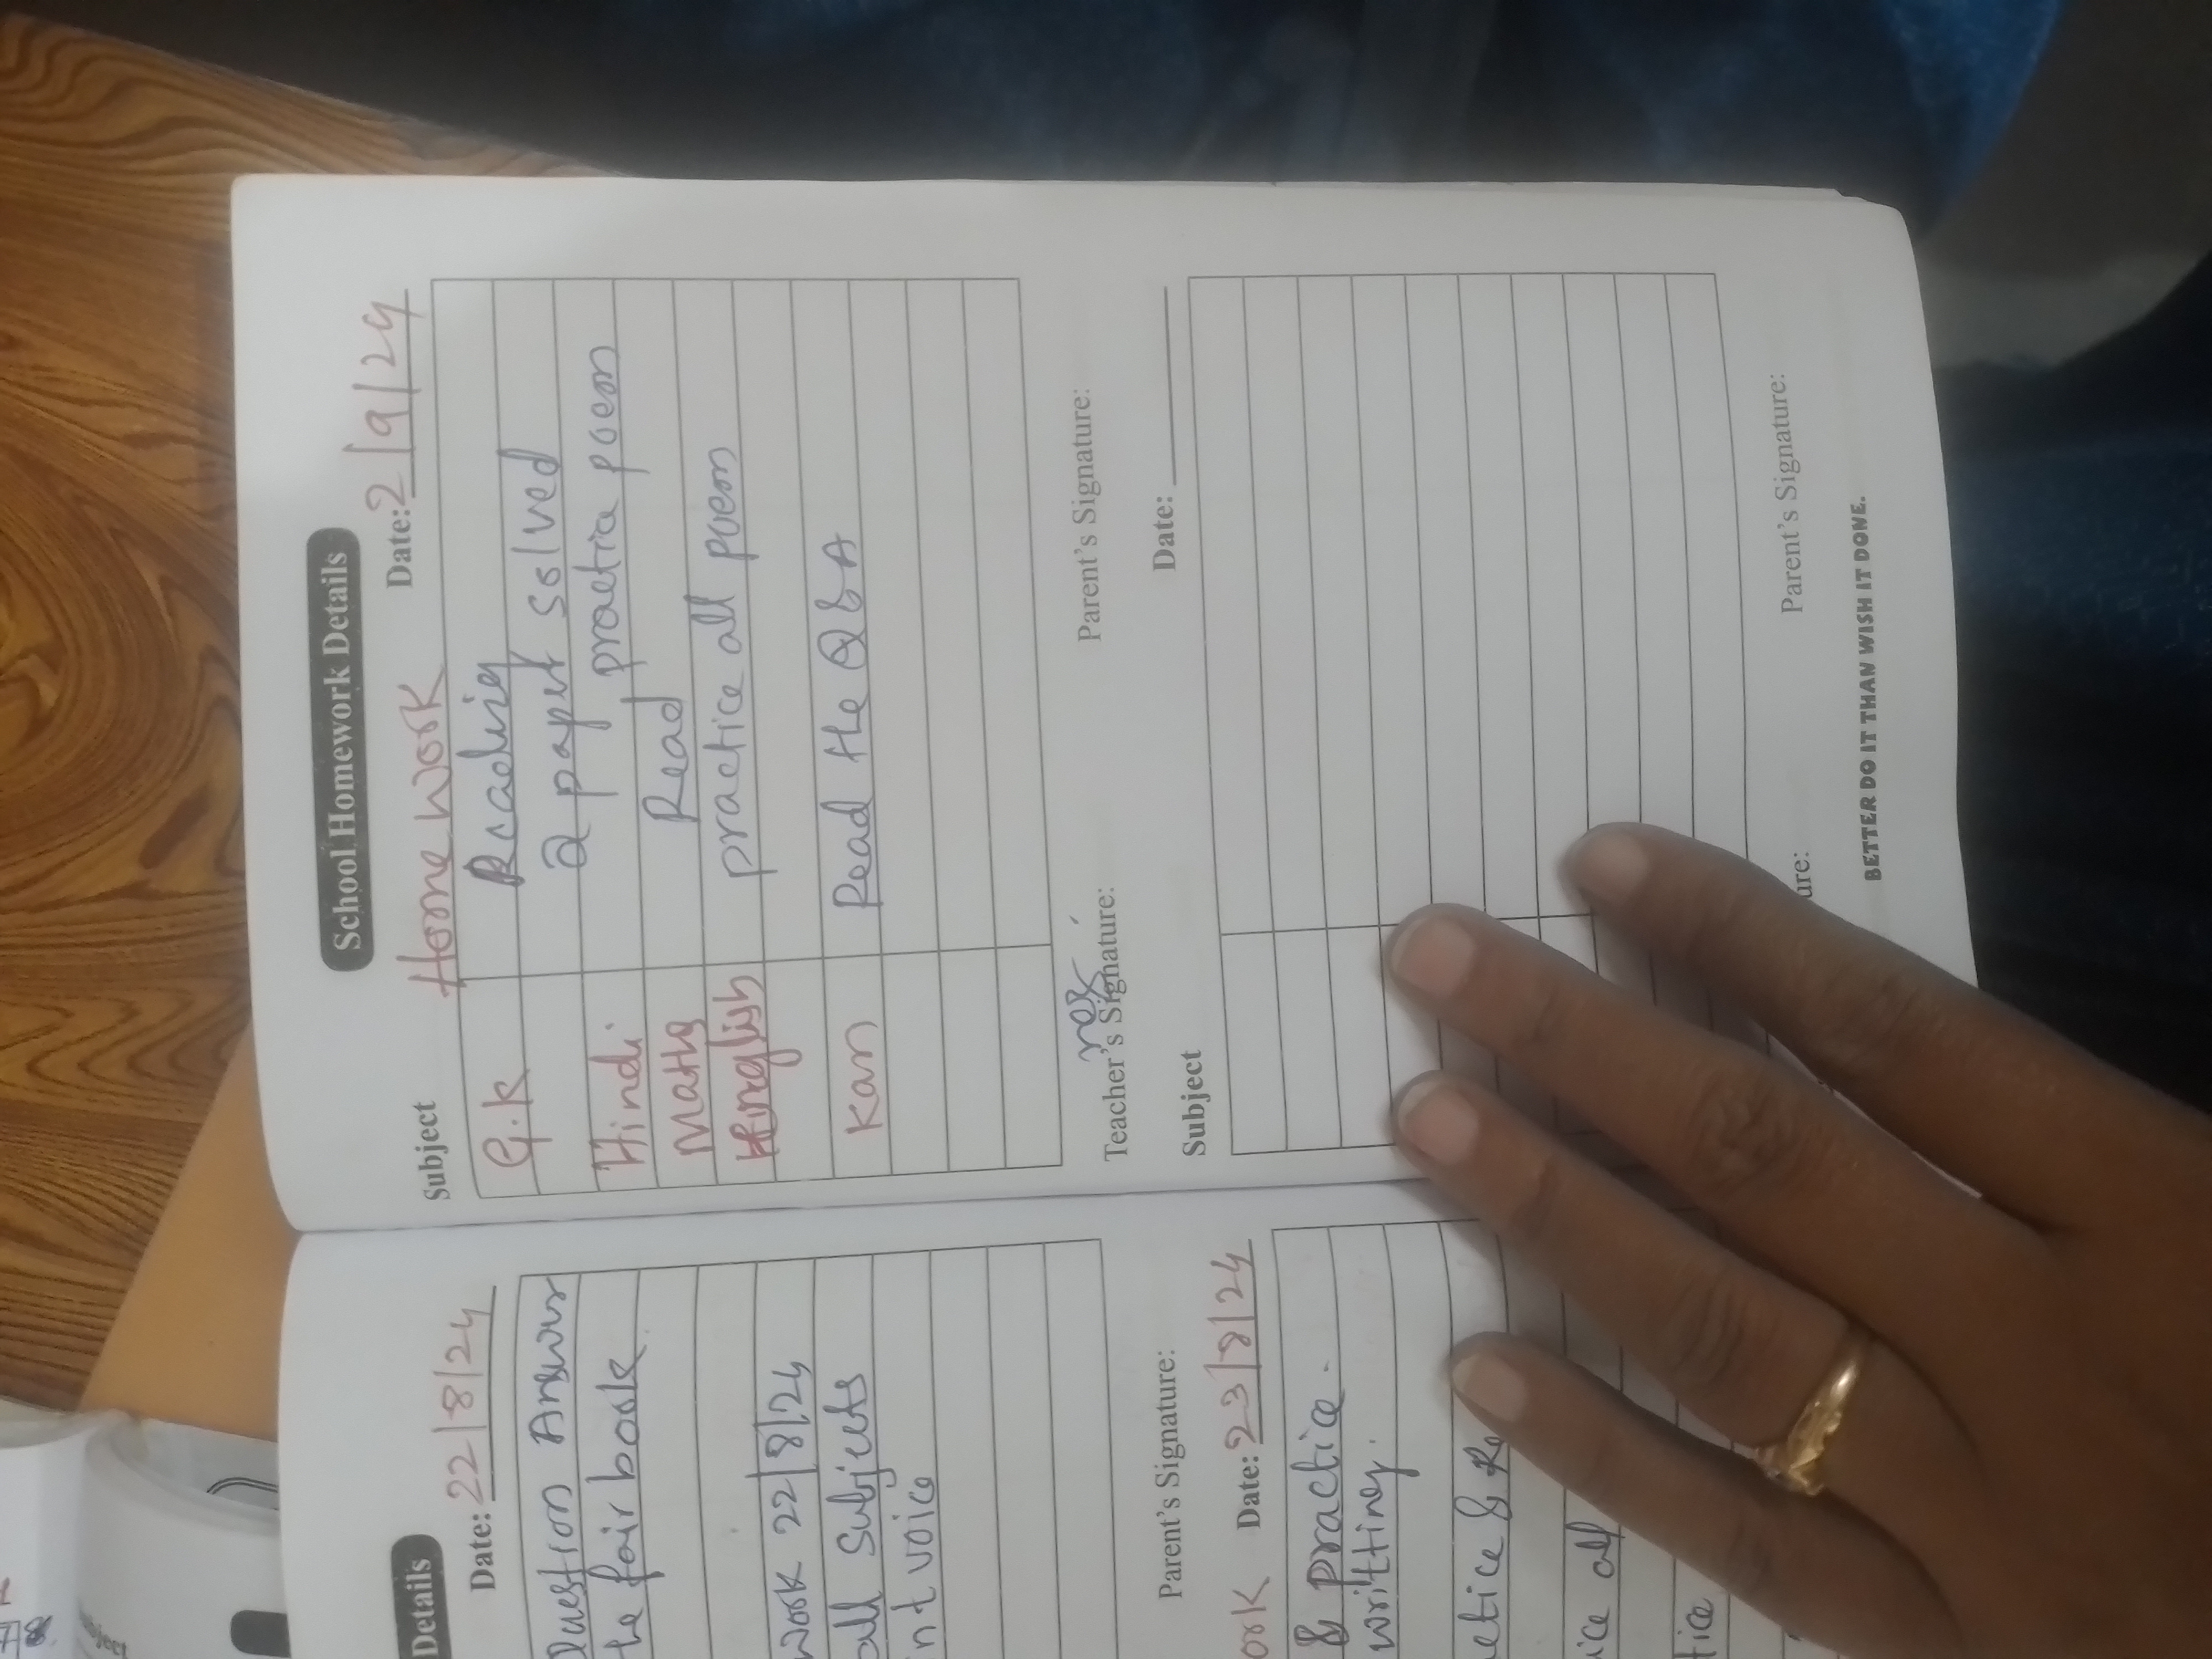 Details
Date: 22/8/24
Question Answer
the fair book.
work 22/8/24
all Subjects
voice
Parent's Signature:
ork Date: 23/8/24
& practice.
writting.
&
tice
School Homework Details
Home Work Date: 2/9/24
Subject
G.K Reading
2 paper solved
Hindi. practice poem
Maths Read
English practice all poem
Kan Read the Q & A
Teacher's Signature:
Parent's Signature:
Date:
Subject
ure:
Parent's Signature:
BETTER DO IT THAN WISH IT DONE.